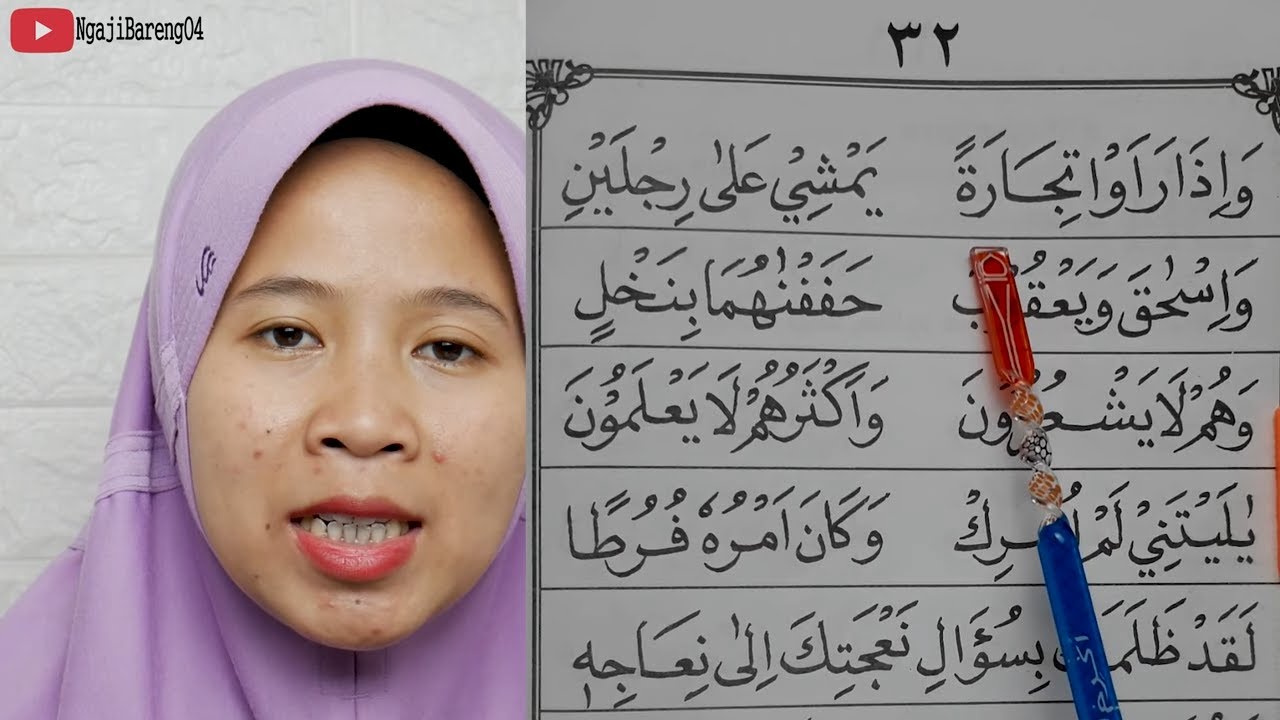 NgajiBareng04
٣٢
وَاِذَا رَاَوْا تِجَارَةً يَمْشِيْ عَلٰى رِجْلَيْنِ
وَاِسْحٰقَ وَيَعْقُوْبَ حَفَفْنٰهُمَا بِنَخْلٍ
وَهُمْ لَا يَشْعُرُوْنَ وَاَكْثَرُهُمْ لَا يَعْلَمُوْنَ
يٰلَيْتَنِيْ لَمْ اُشْرِكْ وَكَانَ اَمْرُهٗ فُرُطًا
لَقَدْ ظَلَمَكَ بِسُؤَالِ نَعْجَتِكَ اِلٰى نِعَاجِهٖ